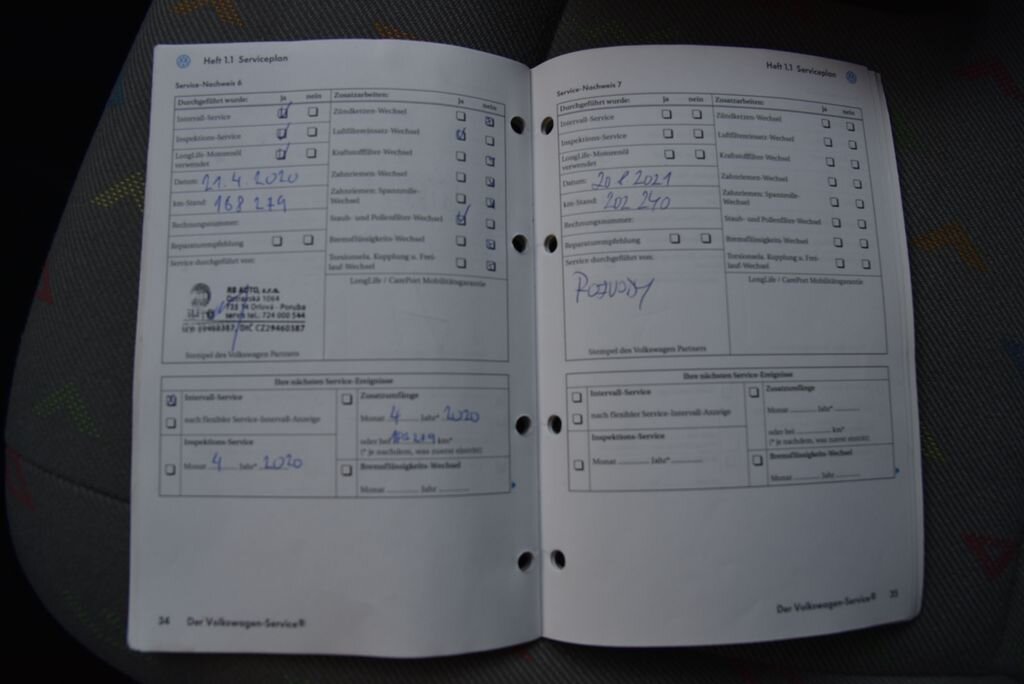 Heft 1.1 Serviceplan
Service-Nachweis 6
Durchgeführt wurde: ja nein
Intervall-Service
Inspektions-Service
LongLife-Motorenöl
verwendet
Datum: 21.4.2020
km-Stand: 168 279
Rechnungsnummer:
Reparaturempfehlung
Service durchgeführt von:
RB AUTO, s.r.o.
Ostravská 1064
735 14 Orlová - Poruba
servis tel.: 724 000 544
DIČ CZ29460387
Stempel des Volkswagen Partners
Zusatzarbeiten: ja nein
Zündkerzen-Wechsel
Luftfiltereinsatz-Wechsel
Kraftstofffilter-Wechsel
Zahnriemen-Wechsel
Zahnriemen: Spannrolle-
Wechsel
Staub- und Pollenfilter-Wechsel
Bremsflüssigkeits-Wechsel
Torsionsela. Kupplung u. Frei-
lauf-Wechsel
LongLife / CarePort Mobilitätsgarantie
Ihre nächsten Service-Ereignisse
Intervall-Service
nach flexibler Service-Intervall-Anzeige
Inspektions-Service
Monat 4 Jahr* 2020
Zusatzumfänge
Monat 4 Jahr* 2020
oder bei 279 km*
(* je nachdem, was zuerst eintritt)
Bremsflüssigkeits-Wechsel
Monat Jahr
34 Der Volkswagen-Service®
Heft 1.1 Serviceplan
Service-Nachweis 7
Durchgeführt wurde: ja nein
Intervall-Service
Inspektions-Service
LongLife-Motorenöl
verwendet
Datum: 20 8 2021
km-Stand: 202 240
Rechnungsnummer:
Reparaturempfehlung
Service durchgeführt von:
ROZVODY
Stempel des Volkswagen Partners
Zusatzarbeiten: ja nein
Zündkerzen-Wechsel
Luftfiltereinsatz-Wechsel
Kraftstofffilter-Wechsel
Zahnriemen-Wechsel
Zahnriemen: Spannrolle-
Wechsel
Staub- und Pollenfilter-Wechsel
Bremsflüssigkeits-Wechsel
Torsionsela. Kupplung u. Frei-
lauf-Wechsel
LongLife / CarePort Mobilitätsgarantie
Ihre nächsten Service-Ereignisse
Intervall-Service
nach flexibler Service-Intervall-Anzeige
Inspektions-Service
Monat Jahr*
Zusatzumfänge
Monat Jahr*
oder bei km*
(* je nachdem, was zuerst eintritt)
Bremsflüssigkeits-Wechsel
Monat Jahr
Der Volkswagen-Service® 35